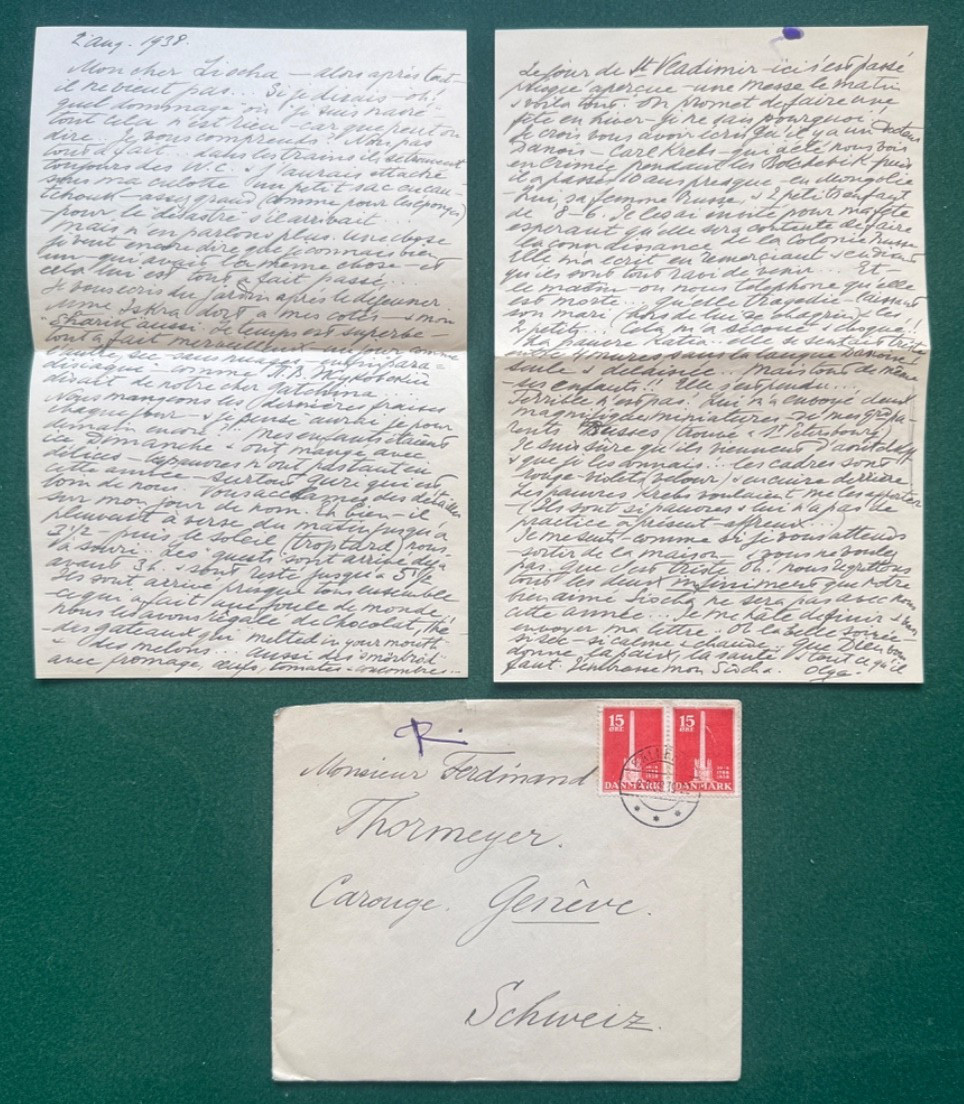 2 aug. 1938.
Mon cher Siocha – alors après tout
il ne vient pas... Si je disais – oh!
quel dommage ou je suis navré –
tout cela n'est rien – car que peut on
dire. Je vous comprends! N'ont pas
tout à fait... dans les trains il se trouvent
toujours des W.C. & j'aurais attaché
sous ma culotte un petit sac en caou-
tchouc – assez grand (comme pour les éponges)
pour le désastre s'il arrivait...
Mais n'en parlons plus. Une chose
je veux encore dire que je connais bien
un – qui avait la même chose – et
cela lui est tout à fait passé...
Je vous écris du jardin après le déjeuner
Mme Iskra dort à mes cotés – & mon
Sharik aussi. Le temps est superbe –
tout à fait merveilleux un jour comme
l'autre, sec – sans nuages – un para=
disiaque – comme
disait de notre cher Gatchina...
Nous mangeons les dernières fraises
chaque jour – & je pense aurai-je pour
demain encore! – Mes enfants étaient
ici Dimanche & ont mangé avec
délices – n'ont pas tant eu
cette année – surtout Gury qui est
loin de nous. Vous des détailles
sur mon jour de nom. Eh bien – il
pleuvait à verse du matin jusqu'à
2 1/2 – puis le soleil (trop tard) nous
a souri... Les guests sont arrivé déjà
avant 3h. & sont resté jusqu'à 5 1/2
Ils sont arrivé presque tous ensemble
ce qui a fait une foule de monde,
nous les avons régalé de chocolat, thé
des gateaux qui melted in your mouth
& des melons... aussi des smörbröd
avec fromage, œufs, tomates – concombres...
Le jour de St Vladimir – ici s'est passé
presque aperçue – une messe le matin
& voilà tout. On promet de faire une
fête en hiver – je ne sais pourquoi.
Je crois vous avoir écris qu'il y a un
Danois – Carl Krebs – qui a été nous voir
en Crimée pendant les Bolcheviks puis
il a passé 10 ans presque – en Mongolie
Lui, sa femme Russe, & 2 petits enfant
de 8–6. Je les ai invité pour ma fête
esperant qu'elle sera contente de faire
la connaissance de la colonie Russe
Elle m'a ecrit en remerciant & en disant
qu'ils sont tout ravi de venir... Et –
le matin – on nous telephone qu'elle
est morte... quelle tragédie – laissant
son mari (hors de lui de chagrin) & les
2 petits... Cela m'a secoué & choqué!
La pauvre Katia... elle se sentait triste
entre 4 mures sans la langue Danoise
seule & délaissée... mais tout de même
– ses enfants!! Elle s'est pendu...
Terrible n'est pas! Lui m'a envoyé deux
magnifiques miniatures – de mes grdpa-
rents Russes (trouvé à St Pétersbourg)
Je suis sûre qu'ils viennent d'Anitchkoff
& que je les connais... les cadres sont
rouge-violet (velour) & en cuire derrière
Les pauvres Krebs voulaient me les apporter
(Ils sont si pauvres & lui n'a pas de
practice à présent – affreux...)
Je me sent – comme si je vous attends
– sortir de la maison – & vous ne voulez
pas. Que c'est triste Oh! nous regrettons
tous les deux infiniment que notre
bien aimé Siocha ne sera pas avec nous
cette année... Je me hâte de finir &
envoyer ma lettre. Oh la belle soirée –
si sec – si calme & chaude... Que Dieu vous
donne la paix, la santé & tout ce qu'il
faut. J'embrasse mon Siocha. Olga.
R.
Monsieur Ferdinand
Thormeyer.
Carouge. Genève.
Schweiz.
15 ØRE
DANMARK
15 ØRE
DANMARK